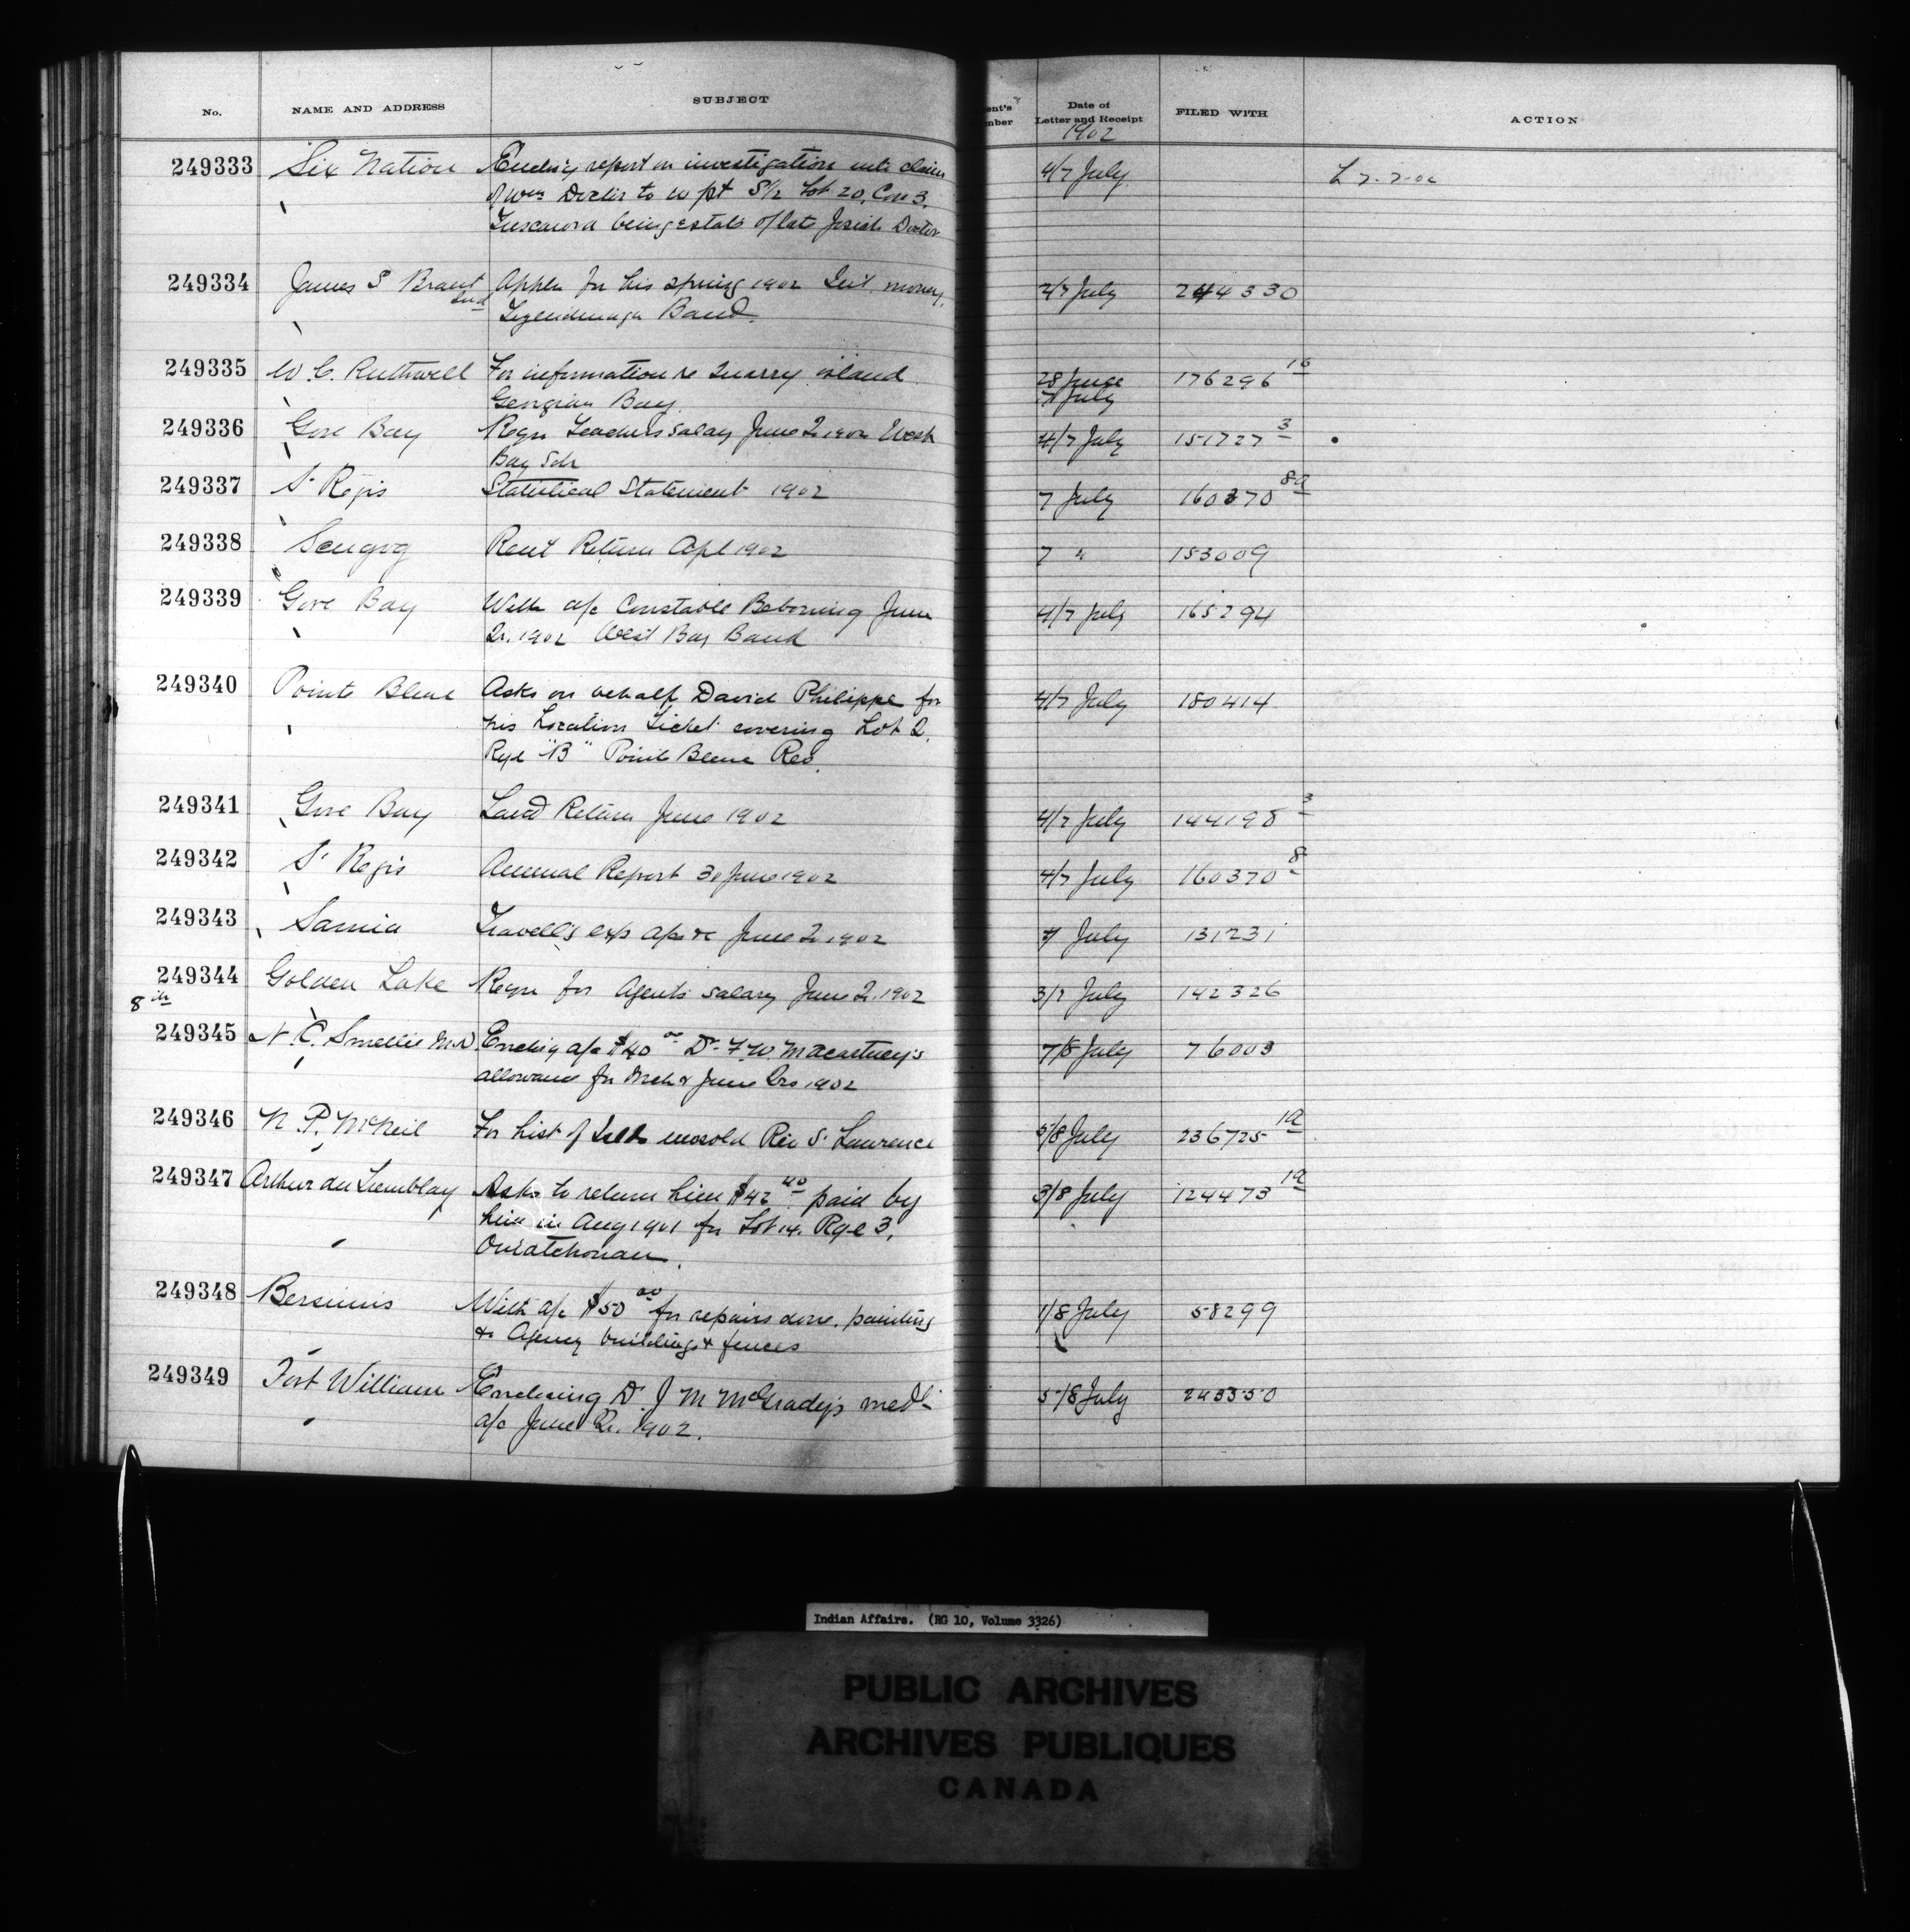 No. NAME AND ADDRESS SUBJECT ent's mber Date of Letter and Receipt FILED WITH ACTION
1902
249333 Six Nation Enclos'g report on investigation into claim 4/7 July L 7-7-02
of Wm Doctor to W pt S/2 Lot 20, Con 3,
Tuscarora being estate of late Josiah Doctor
249334 James S Brant Appln for his spring 1902 Int. money, 2/7 July 244330
Ind Tyendinaga Band.
249335 W. C. Ruthwell For information re Quarry island 28 June 176296 16
Georgian Bay. 7 July
249336 Gore Bay Reqn Teachers salary June Q 1902 West 4/7 July 151727 3
Bay Sch
249337 St Regis Statistical Statement 1902 7 July 160370 8a
249338 Scugog Rent Return Apl 1902 7 " 153009
249339 Gore Bay With a/c Constable Beboning June 4/7 July 165294
Qr. 1902 West Bay Band
249340 Pointe Bleue Asks on behalf David Philippe for 4/7 July 180414
his Location Ticket covering Lot 2,
Rge "B" Pointe Bleue Res.
249341 Gore Bay Land Return June 1902 4/7 July 144198 3
249342 St Regis Annual Report 30 June 1902 4/7 July 160370 8
249343 Sarnia Travell'g exp a/c June Q 1902 7 July 131231
249344 Golden Lake Reqn for Agents salary June Q. 1902 3/7 July 142326
8th
249345 N. C. Smellie M.D Enclos'g a/c $40 00 Dr F. W. Macartney's 7/8 July 76003
allowance for Mch & June Qrs 1902
249346 N. P. McNeil For List of unsold Riv St Lawrence 5/8 July 236725 1a
249347 Arthur du Tremblay Asks to return him $42 40 paid by 3/8 July 124473 1a
him in Aug 1901 for Lot 14. Rge 3,
Ouiatchouan.
249348 Bersimis With a/c $50 00 for repairs done, painting 1/8 July 58299
&c Agency buildings & fences
249349 Fort William Enclosing Dr J M McGrady's med'l 5/8 July 243350
a/c June Qr. 1902.
Indian Affairs. (RG 10, Volume 3326)
PUBLIC ARCHIVES
ARCHIVES PUBLIQUES
CANADA